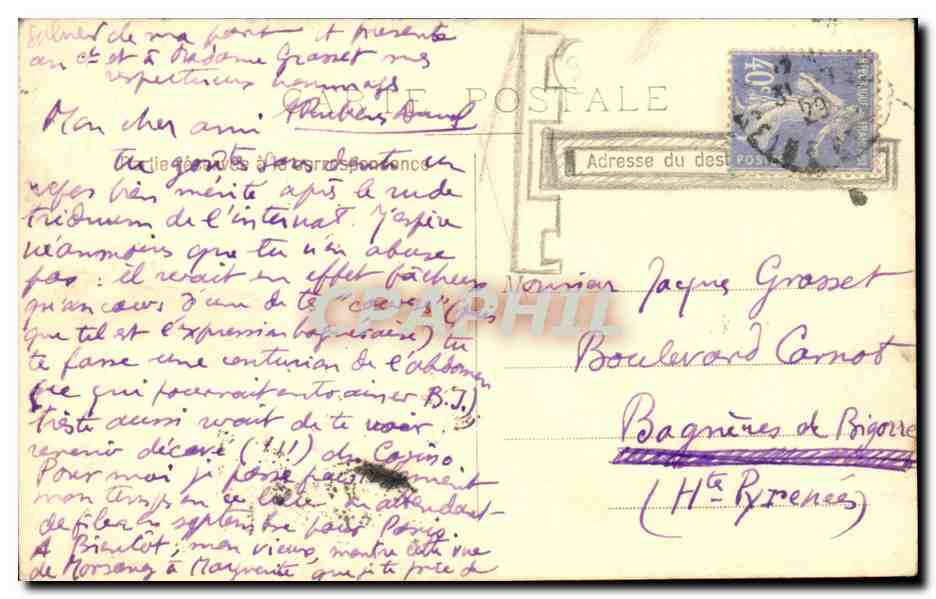 saluer de ma part et présente
au cl et à Madame Grasset mes
respectueux hommages
CARTE POSTALE
Mon cher ami
Partie réservée à la correspondance
Adresse du dest
40c
POSTES
tu goûtes sans doute un
repos bien mérité après le rude
triduum de l'internat. J'espère
néanmoins que tu n'en abuse
pas : il serait en effet fâcheux
qu'au cours d'un de tes
que tel est l'expression bagnéraise) tu
te fasse une contusion de l'abdomen
(ce qui pourrait entrainer B.I.)
triste aussi serait de te voir
revenir décavé (!!!) du Casino
Pour moi je passe
mon temps en ce lieu en attendant
de filer en septembre pour Paris
A Bientôt, mon vieux, montre cette vue
de Morsang à Marguerite, que je te prie de
Monsieur Jacques Grasset
Boulevard Carnot
Bagnères de Bigorre
(Htes Pyrenées)
CPAPHIL